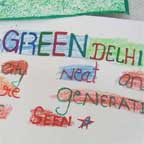 GREEN DELHI
city neat an
re GENERATI
SEEN